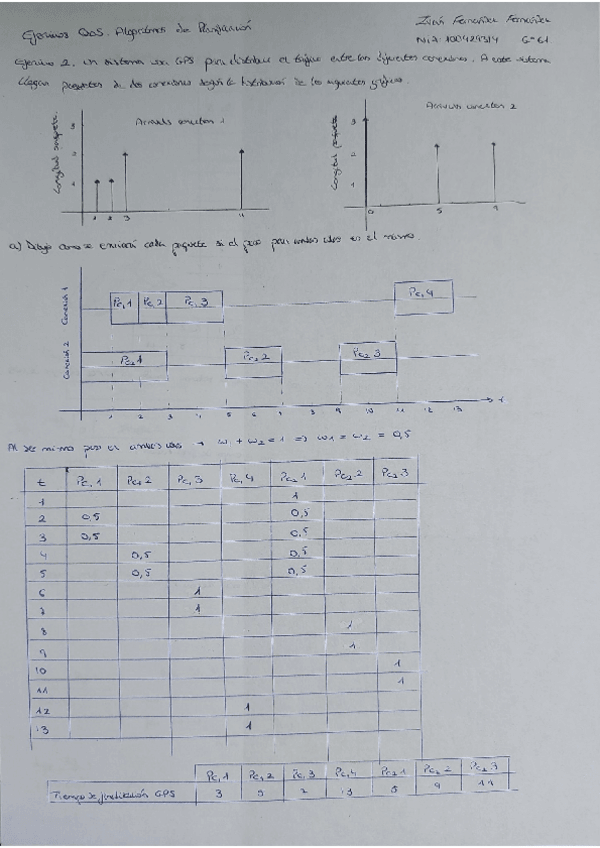 Ejercicios QoS. Algoritmos de Planificación
Fernández Fernández
NIA: 100429314 G-61
Ejercicio 2. Un sistema usa GPS para distribuir el tráfico entre las diferentes conexiones. A este sistema
llegan paquetes de dos conexiones según la distribución de los siguientes gráficos.
Longitud paquete
Arrivals conection 1
3
2
1
1 2 3
Longitud paquete
Arrivals conection 2
3
2
1
0 5
a) Dibuje como se enviará cada paquete si el peso para ambas colas es el mismo.
Conexión 1
Pc₁1 Pc₁2 Pc₁3 Pc₁4
Conexión 2
Pc₂1 Pc₂2 Pc₂3
1 2 3 4 5 6 7 8 9 10 11 12 13 t
Al ser mismo peso en ambas colas → w₁ + w₂ = 1 => w1 = w2 = 0,5
t Pc₁1 Pc₁2 Pc₁3 Pc₁4 Pc₂1 Pc₂2 Pc₂3
1 1
2 0,5 0,5
3 0,5 0,5
4 0,5 0,5
5 0,5 0,5
6 1
7 1
8 1
9 1
10 1
11 1
12 1
13 1
Pc₁1 Pc₁2 Pc₁3 Pc₁4 Pc₂1 Pc₂2 Pc₂3
Tiempo de finalización GPS 3 9 11